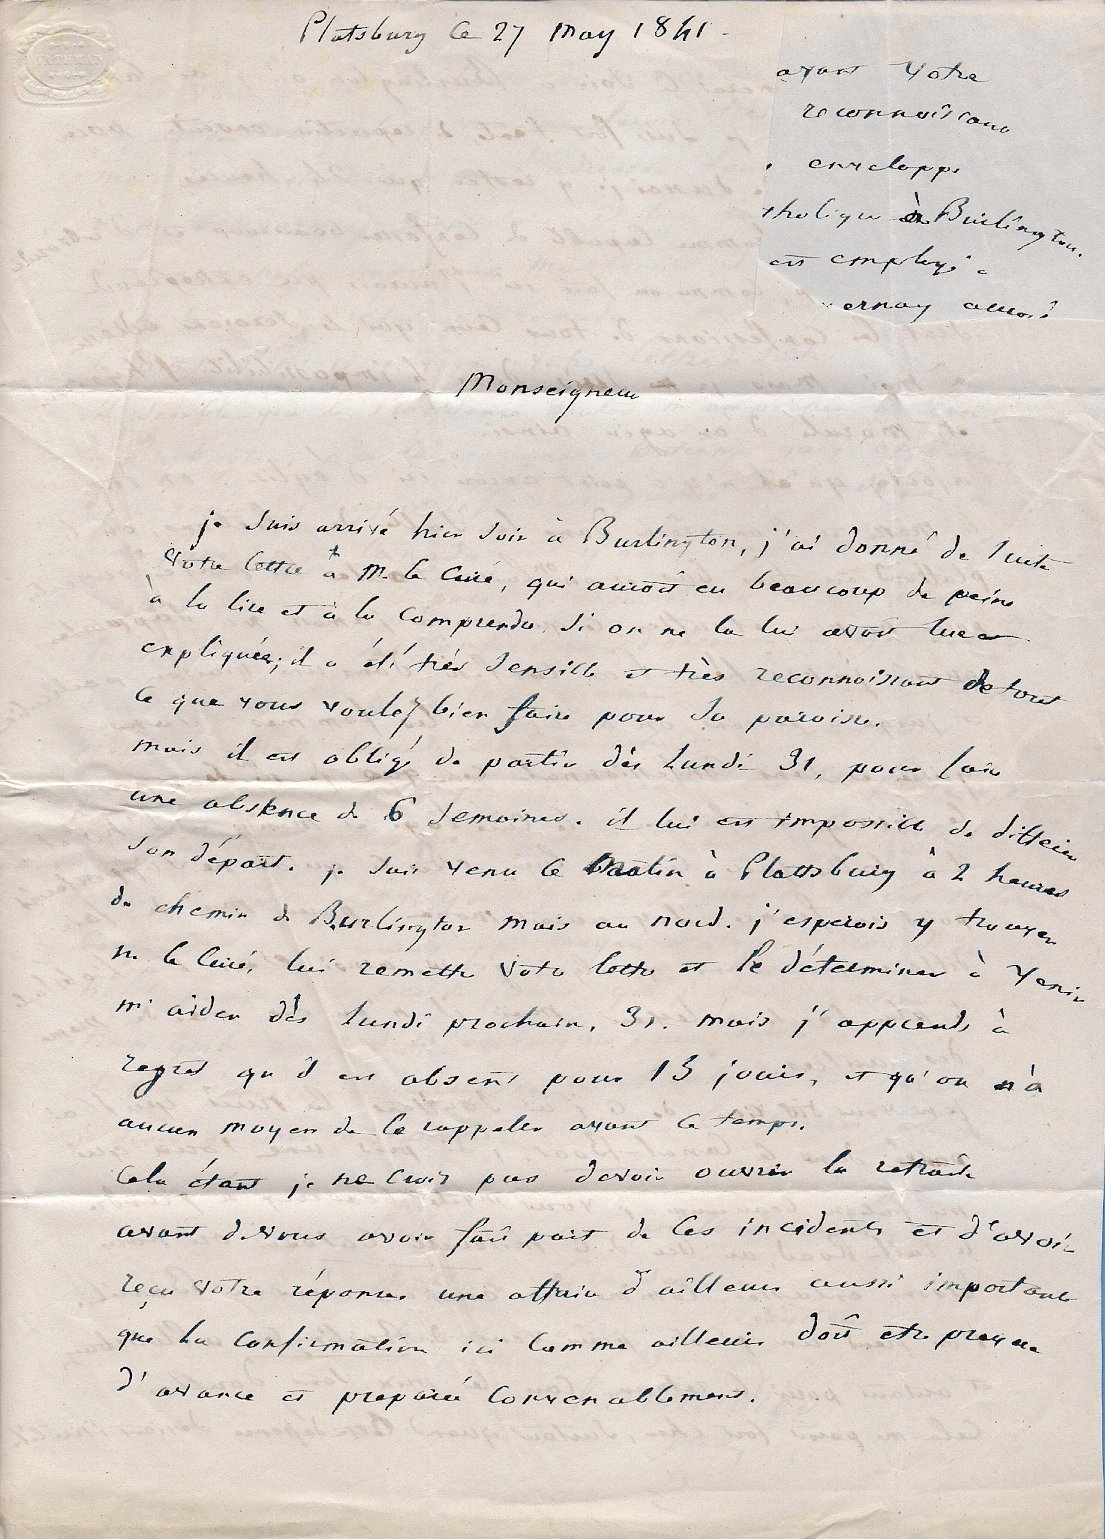 Platsburg le 27 may 1841.
avant votre
reconnoissanc
envelopps
tholique à Burlington.
est employé à
vernay auroit
Monseigneur
je suis arrivé hier soir à Burlington, j'ai donné de suite
votre lettre à Mr le Curé, qui auroit eu beaucoup de peine
à la lire et à la comprendre si on ne la lui avoit lue et
expliquée; il a été très sensible et très reconnoissant de tout
ce que vous voulez bien faire pour sa paroisse.
mais il est obligé de partir dès Lundi 31, pour faire
une absence de 6 semaines. il lui est impossible de différer
son départ. je suis venu ce matin à Plattsburg à 2 heures
de chemin de Burlington mais au nord. j'esperois y trouver
m. le Curé, lui remettre votre lettre et le déterminer à venir
m'aider dès lundi prochain, 31. mais j'apprends à
regret qu'il est absent pour 15 jours, et qu'on n'a
aucun moyen de le rappeler avant ce temps.
Cela étant je ne crois pas devoir ouvrir la retraite
avant de vous avoir fait part de ces incidents et d'avoir
reçu votre réponse. une affaire d'ailleurs aussi importante
que la Confirmation ici comme ailleurs doit etre prevue
d'avance et preparée convenablement.